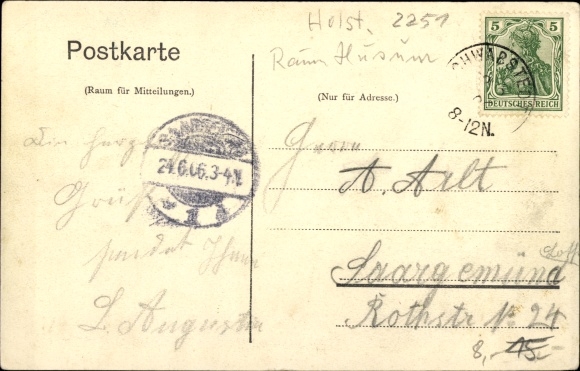 Holst. 2251
Raum Husum
Postkarte
(Raum für Mitteilungen.)
(Nur für Adresse.)
5 5
DEUTSCHES REICH
SCHWABSTEDT
8-12N.
24.6.06.3-4N.
1
Die herzl.
Grüße
sendet Ihnen
L. Augustin
Herrn
A. Arlt
Saargemünd
Rothstr N. 24
8,- 15.-